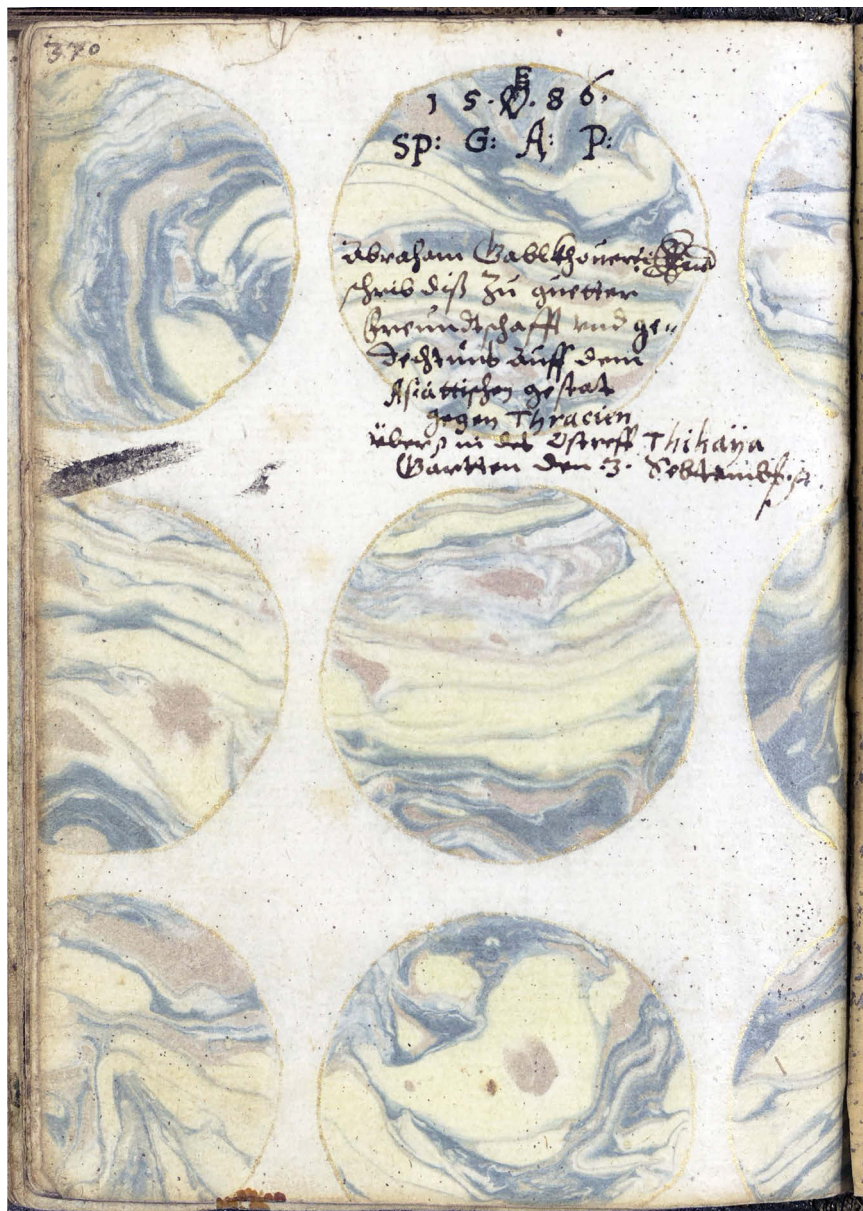 370
1 5. 8 6.
SP: G: A: P:
Abraham Gablkhouer
schrib diß zu guetter
freundtschafft vnd ge„
dechtnus auff dem
Asiattischen gestat
gegen Thracien
übers in des Thihaÿa
Gartten den 3. Sebtemb